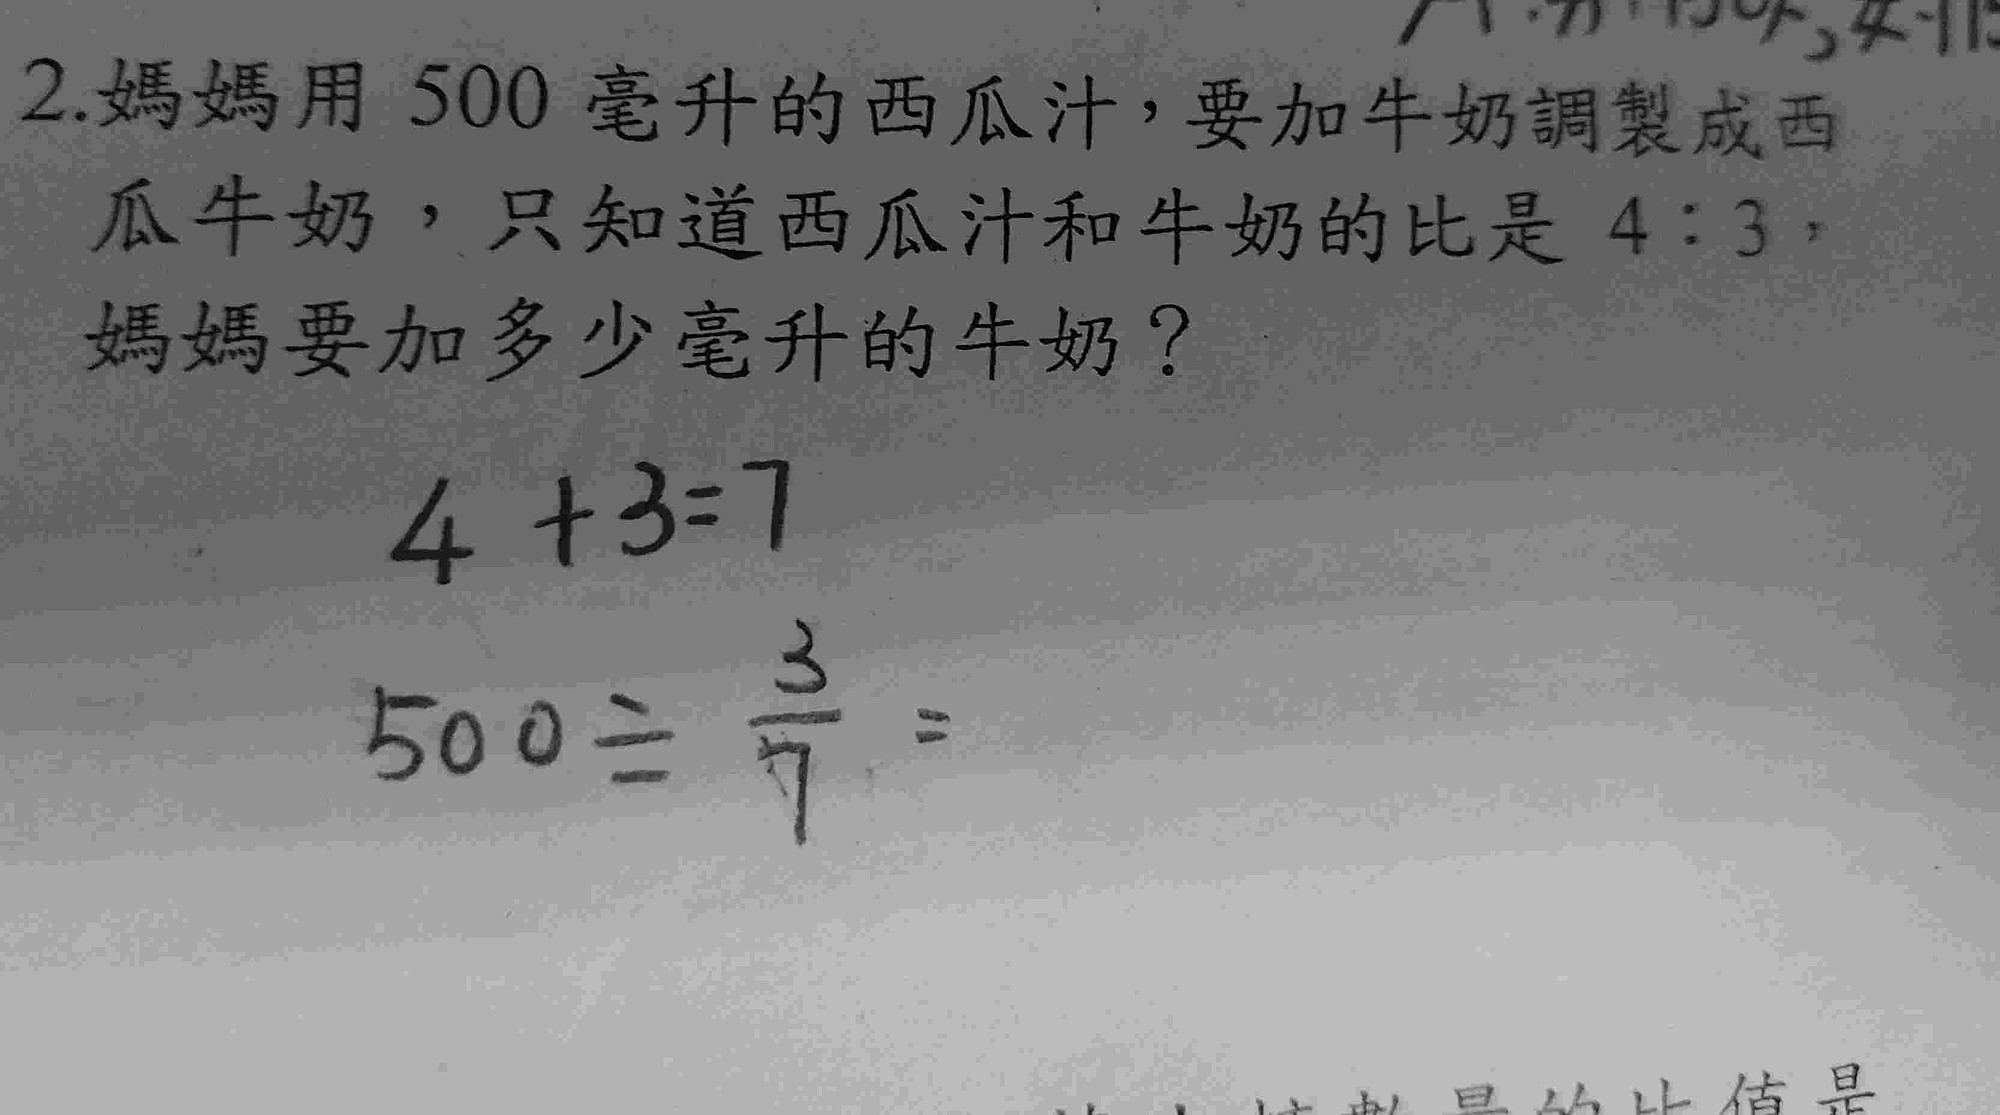 2.媽媽用 500 毫升的西瓜汁，要加牛奶調製成西
瓜牛奶，只知道西瓜汁和牛奶的比是 4：3，
媽媽要加多少毫升的牛奶？
4 + 3 = 7
500 ÷ 3/7 =
數量的比值是